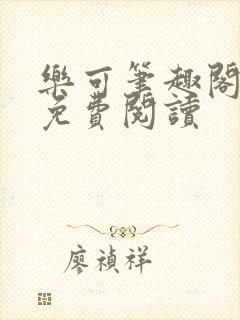 樂可筆趣閣
免費閱讀
廖禎祥